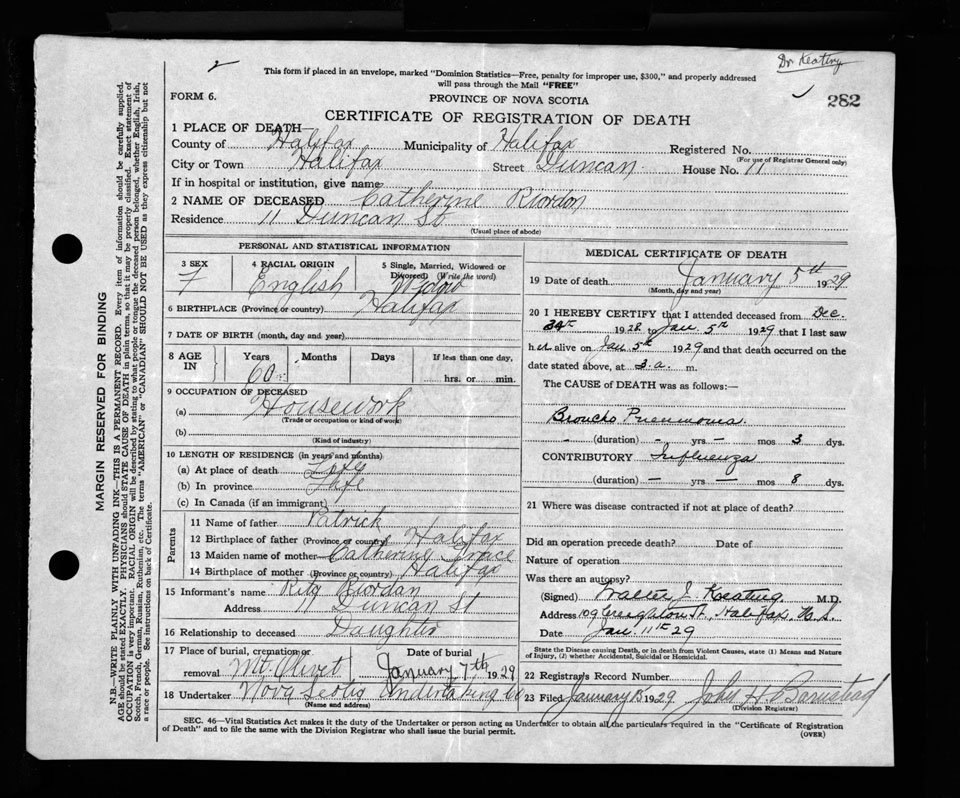 Dr Keating
This form if placed in an envelope, marked "Dominion Statistics—Free, penalty for improper use, $300," and properly addressed
will pass through the Mail "FREE"
FORM 6.
PROVINCE OF NOVA SCOTIA
282
CERTIFICATE OF REGISTRATION OF DEATH
1 PLACE OF DEATH—
County of Halifax Municipality of Halifax Registered No.
(For use of Registrar General only)
City or Town Halifax Street Duncan House No. 11
If in hospital or institution, give name
2 NAME OF DECEASED Catherine Riordon
Residence 11 Duncan St
(Usual place of abode)
PERSONAL AND STATISTICAL INFORMATION
3 SEX 4 RACIAL ORIGIN 5 Single, Married, Widowed or
Divorced (Write the word)
F English Widow
6 BIRTHPLACE (Province or country) Halifax
7 DATE OF BIRTH (month, day and year)
8 AGE IN Years Months Days If less than one day,
60 hrs. or min.
9 OCCUPATION OF DECEASED
(a) Housework
(Trade or occupation or kind of work)
(b)
(Kind of industry)
10 LENGTH OF RESIDENCE (in years and months)
(a) At place of death Life
(b) In province Life
(c) In Canada (if an immigrant)
Parents
11 Name of father Patrick
12 Birthplace of father (Province or country) Halifax
13 Maiden name of mother Catherine Grace
14 Birthplace of mother (Province or country) Halifax
15 Informant's name Rita Riordan
Address 11 Duncan St
16 Relationship to deceased Daughter
17 Place of burial, cremation or removal Mt. Olivet
Date of burial January 7th 1929
18 Undertaker Nova Scotia Undertaking Co
(Name and address)
MEDICAL CERTIFICATE OF DEATH
19 Date of death January 5th 1929
(Month, day and year)
20 I HEREBY CERTIFY that I attended deceased from Dec.
1928 to Jan. 5th 1929 that I last saw
her alive on Jan 5th 1929 and that death occurred on the
date stated above, at 3. a. m.
The CAUSE of DEATH was as follows:—
Broncho Pneumonia.
(duration) — yrs — mos 3 dys.
CONTRIBUTORY Influenza
(duration) — yrs — mos 8 dys.
21 Where was disease contracted if not at place of death?
Did an operation precede death? Date of
Nature of operation
Was there an autopsy?
(Signed) Walter L. Keating. M.D.
Address 109 Creighton St., Halifax, N.S.
Date Jan. 11th 29
State the Disease causing Death, or in death from Violent Causes, state (1) Means and Nature
of Injury, (2) whether Accidental, Suicidal or Homicidal.
22 Registrars Record Number
23 Filed January 1929 John H. Barnstead
(Division Registrar)
SEC. 46—Vital Statistics Act makes it the duty of the Undertaker or person acting as Undertaker to obtain all the particulars required in the "Certificate of Registration
of Death" and to file the same with the Division Registrar who shall issue the burial permit.
(OVER)
MARGIN RESERVED FOR BINDING
N.B.—WRITE PLAINLY WITH UNFADING INK—THIS IS A PERMANENT RECORD. Every item of information should be carefully supplied.
AGE should be stated EXACTLY. PHYSICIANS should STATE CAUSE OF DEATH in plain terms, so that it may be properly classified. Exact statement of
OCCUPATION is very important. RACIAL ORIGIN will be described by stating to what people or tongue the deceased person belonged, whether English, Irish,
Scotch, French, German, Russian, Ruthenian, etc. The terms "AMERICAN" or "CANADIAN" SHOULD NOT BE USED as they express citizenship but not
a race or people. See instructions on back of Certificate.